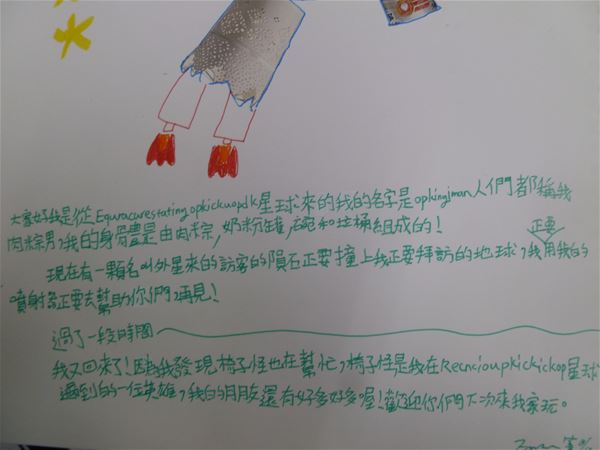 大家好我是從Equracurestatingopkickuopdk星球來的我的名字是opkingjman人們都稱我
肉粽男,我的身體是由肉粽,奶粉罐,碗和垃桶組成的!
正要
現在有一顆名叫外星來的訪客的隕石正要撞上我正要拜訪的地球,我用我的
噴射器正要去幫助你們,再見!
過了一段時間
我又回來了!因為我發現椅子怪也在幫忙,椅子怪是我在Recncioupkickickop星球
遇到的一位英雄,我的朋友還有好多好多喔!歡迎你們下次來我家玩。